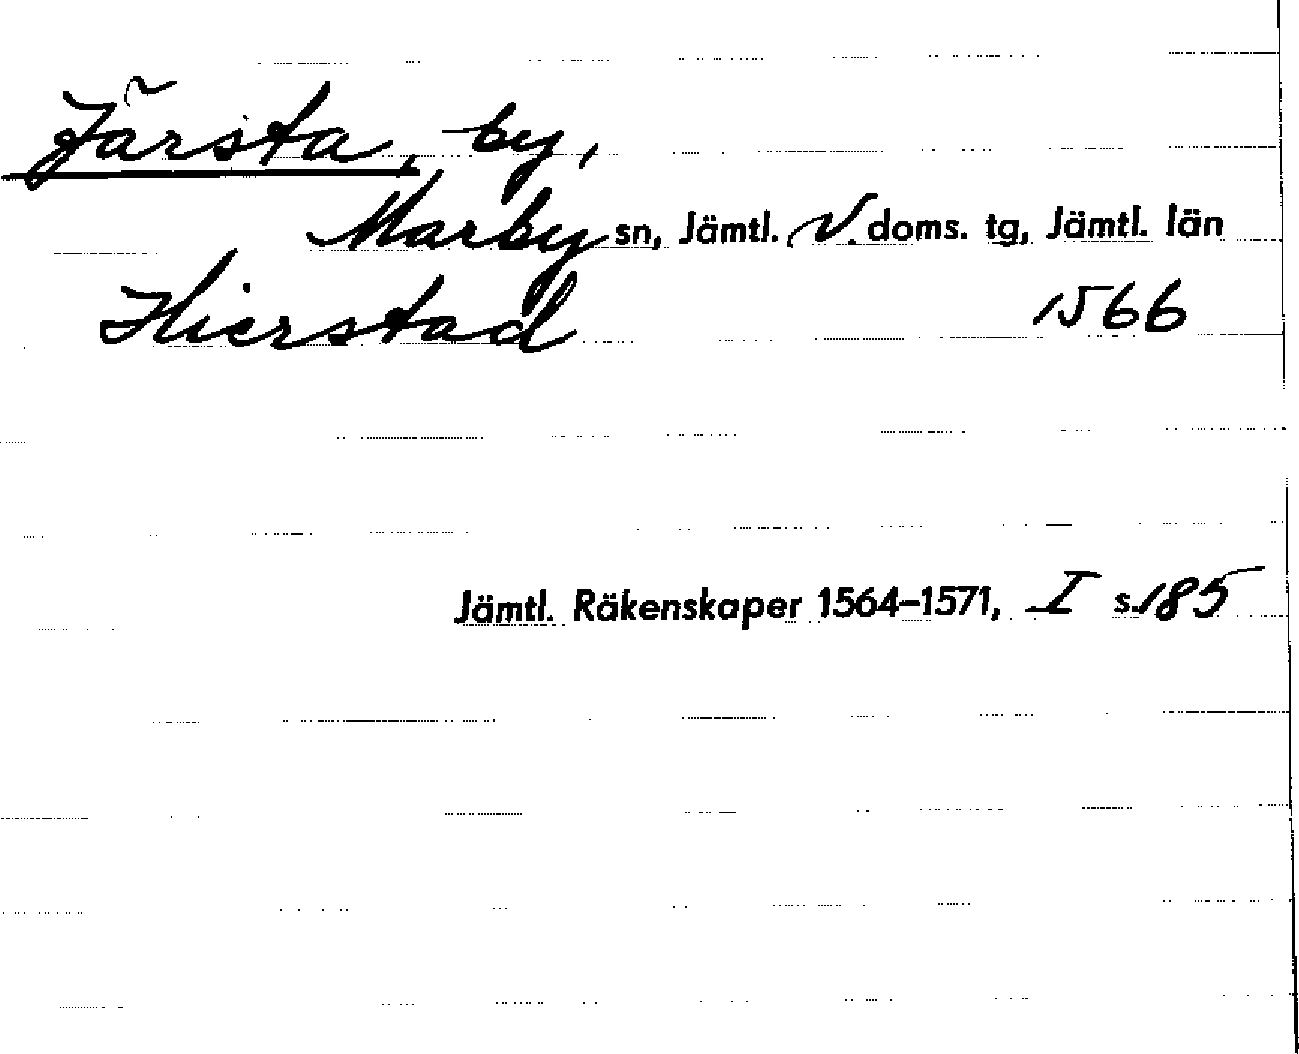 Järsta, by,
Marby sn, Jämtl. V. doms. tg, Jämtl. län
Hierstad 1566
Jämtl. Räkenskaper 1564–1571, I s. 185